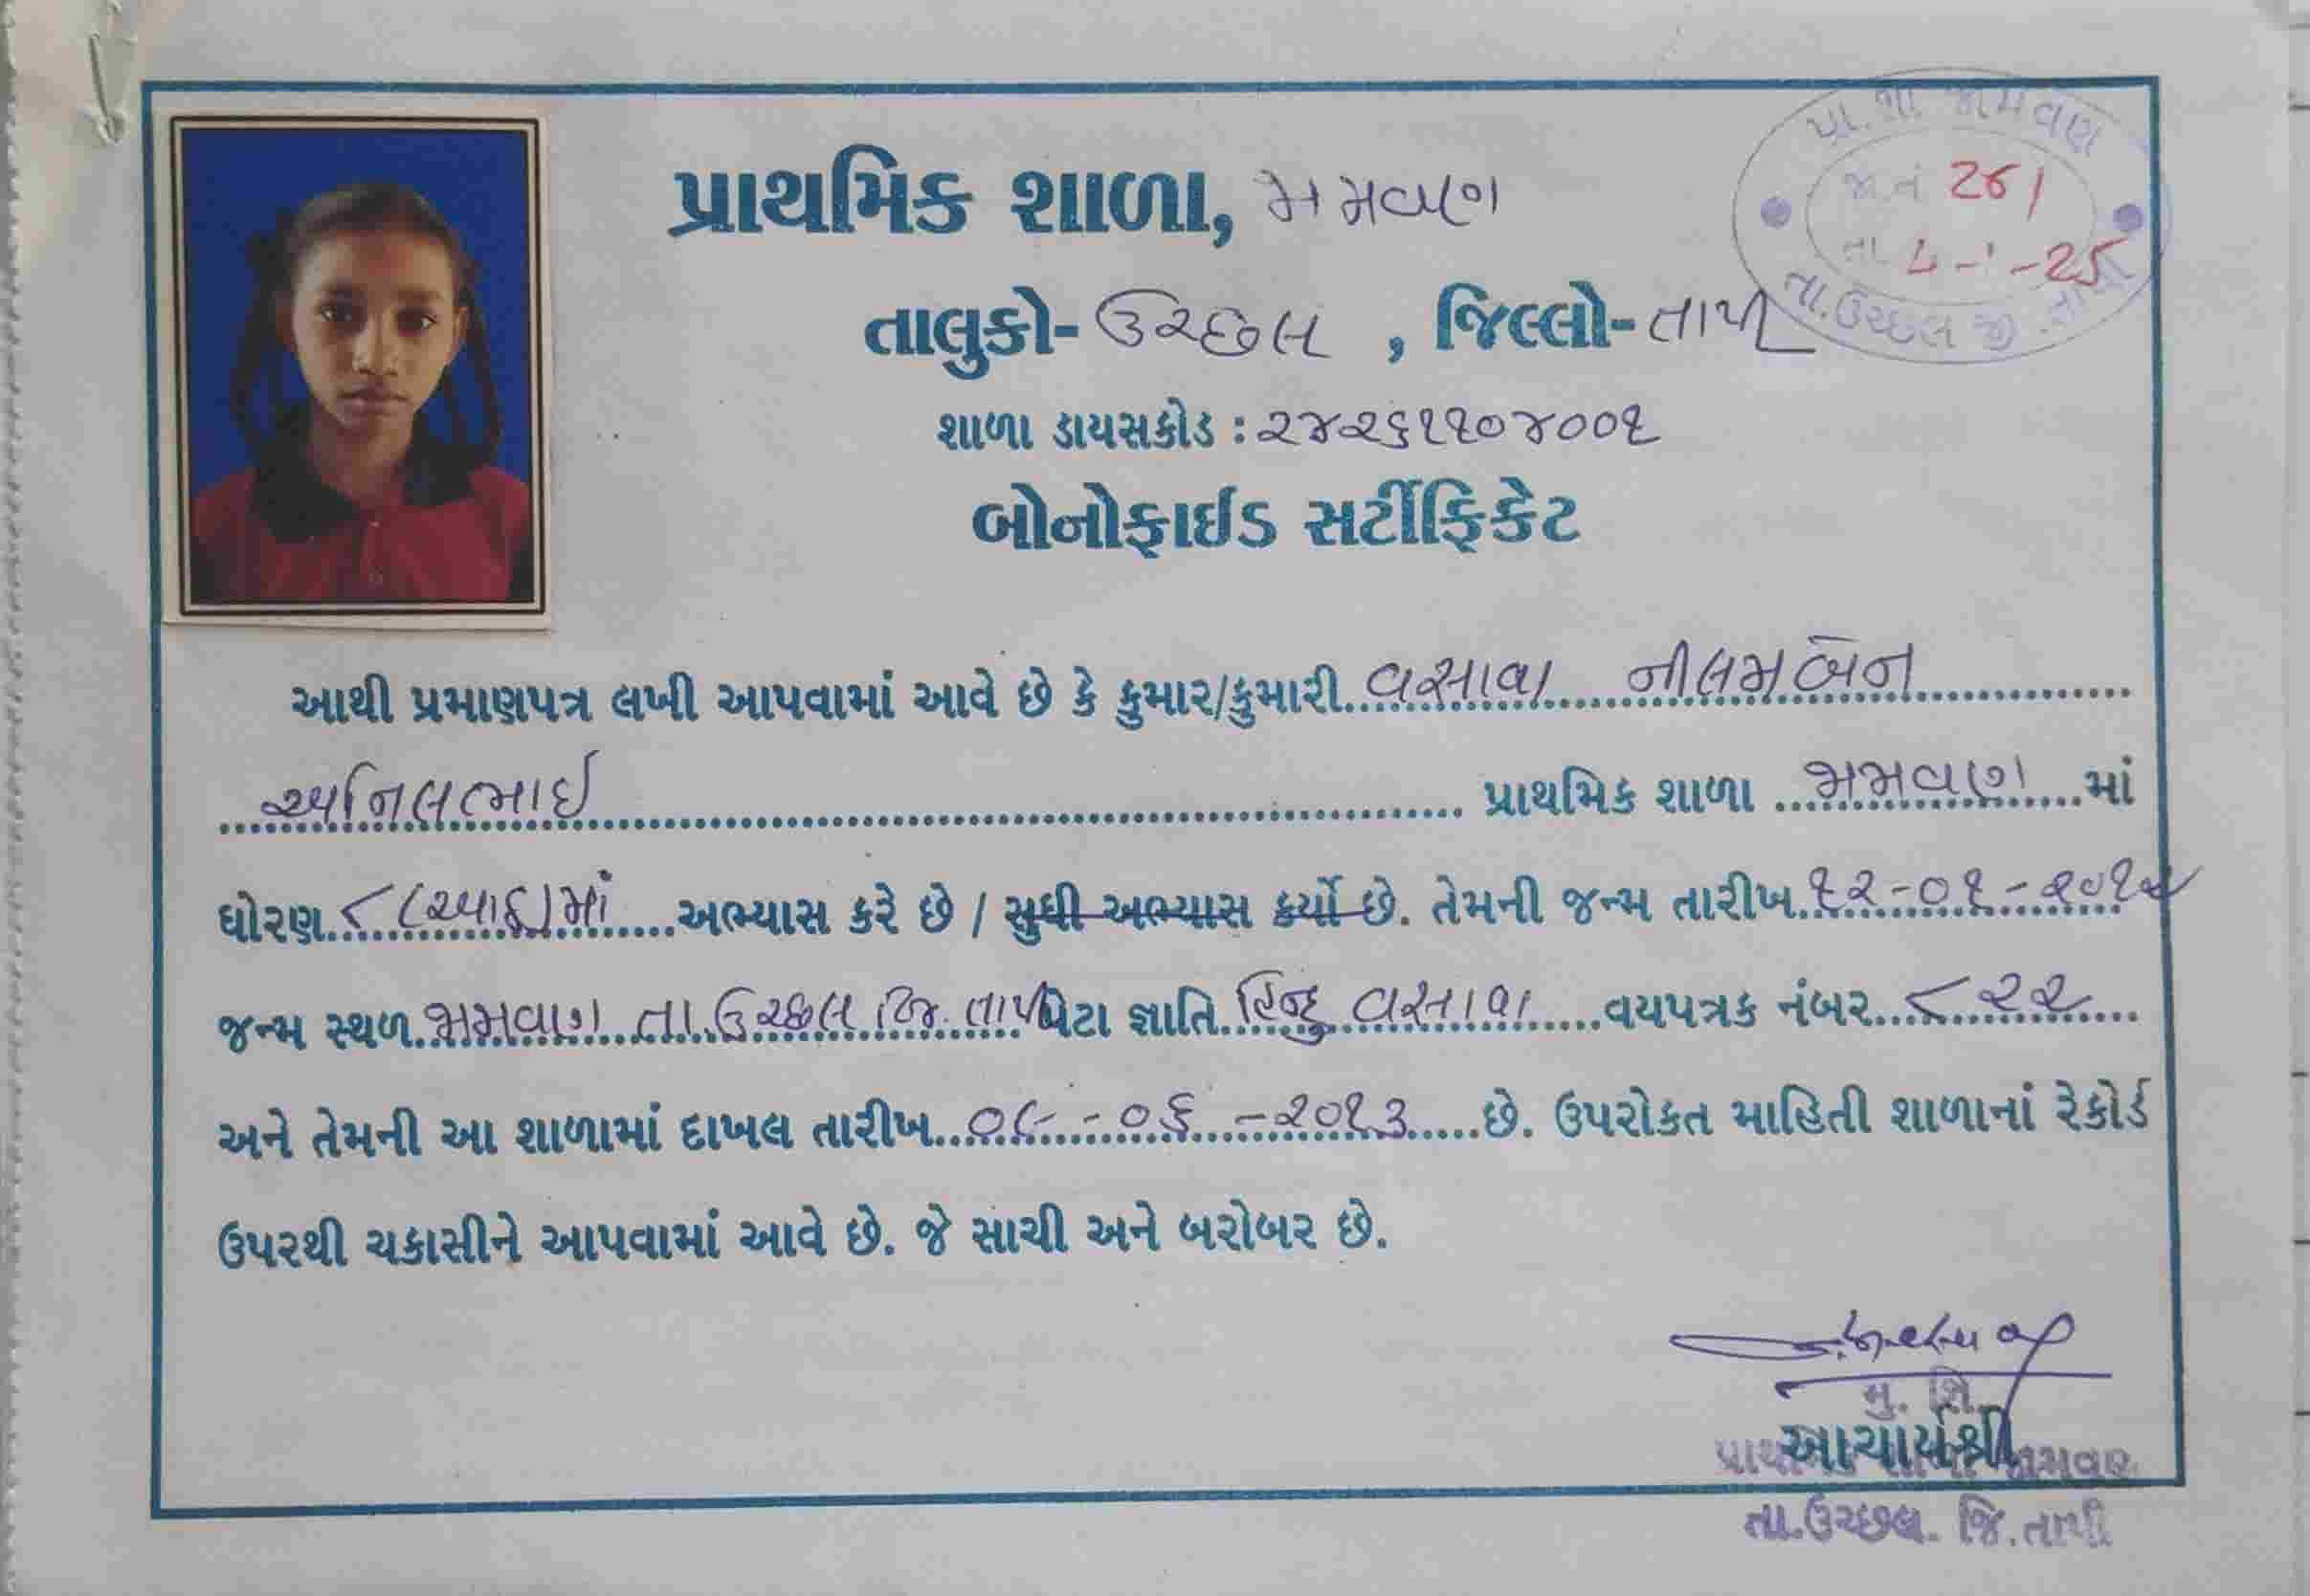 પ્રા.શા જામવણ
જા.નં 261
તા
તા.ઉચ્છલ જી.તાપી
પ્રાથમિક શાળા, જામવણ
તાલુકો- ઉચ્છલ , જિલ્લો- તાપી
શાળા ડાયસકોડ : ૨૪૨૬૧૧૦૪૦૦૧
બોનોફાઈડ સર્ટીફિકેટ
આથી પ્રમાણપત્ર લખી આપવામાં આવે છે કે કુમાર/કુમારી વસાવા નીલમબેન
અનિલભાઈ પ્રાથમિક શાળા જામવણ માં
ધોરણ ૮ (આઠ) માં અભ્યાસ કરે છે / સુધી અભ્યાસ કર્યો છે. તેમની જન્મ તારીખ ૧૨-૦૧-
જન્મ સ્થળ જામવણ તા. ઉચ્છલ જિ. તાપી પેટા જ્ઞાતિ હિન્દુ વસાવા વયપત્રક નંબર ૮૨૨
અને તેમની આ શાળામાં દાખલ તારીખ -૦૬-૨૦૧૩ છે. ઉપરોકત માહિતી શાળાનાં રેકોર્ડ
ઉપરથી ચકાસીને આપવામાં આવે છે. જે સાચી અને બરોબર છે.
મુ. શિ.
આચાર્યશ્રી
જામવણ
તા.ઉચ્છલ. જિ.તાપી